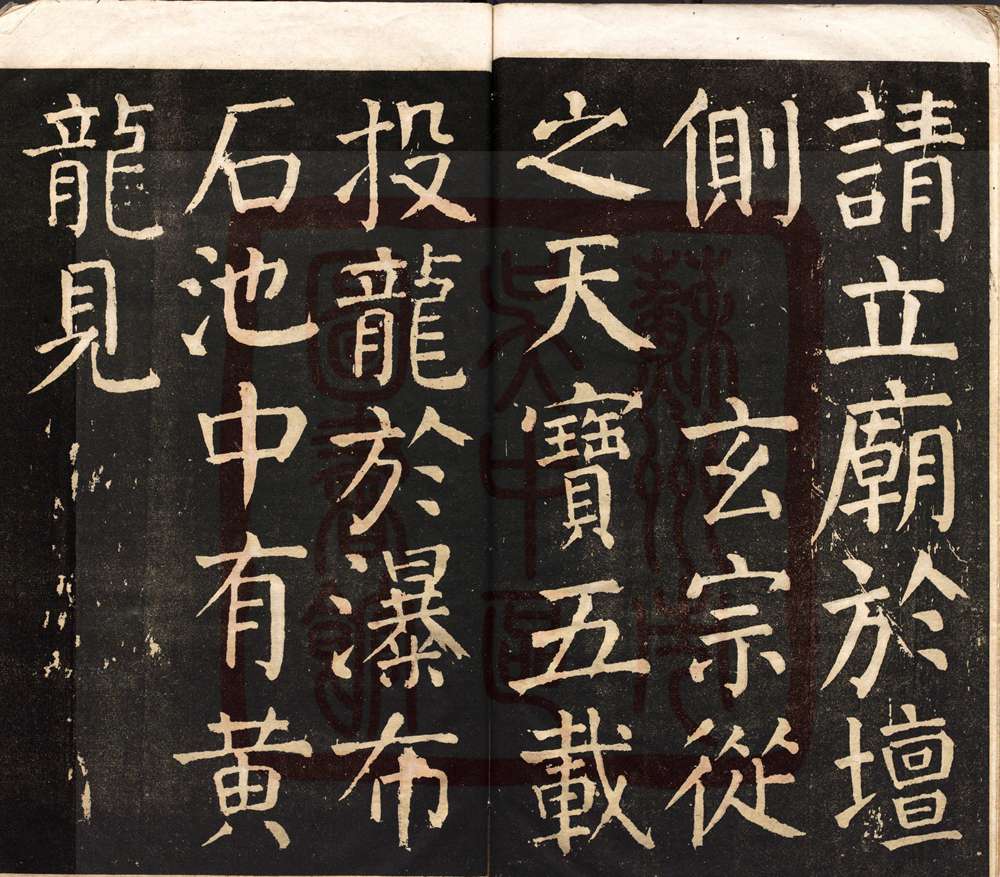 請立廟於壇
側玄宗從
之天寶五載
投龍於瀑布
石池中有黃
龍見